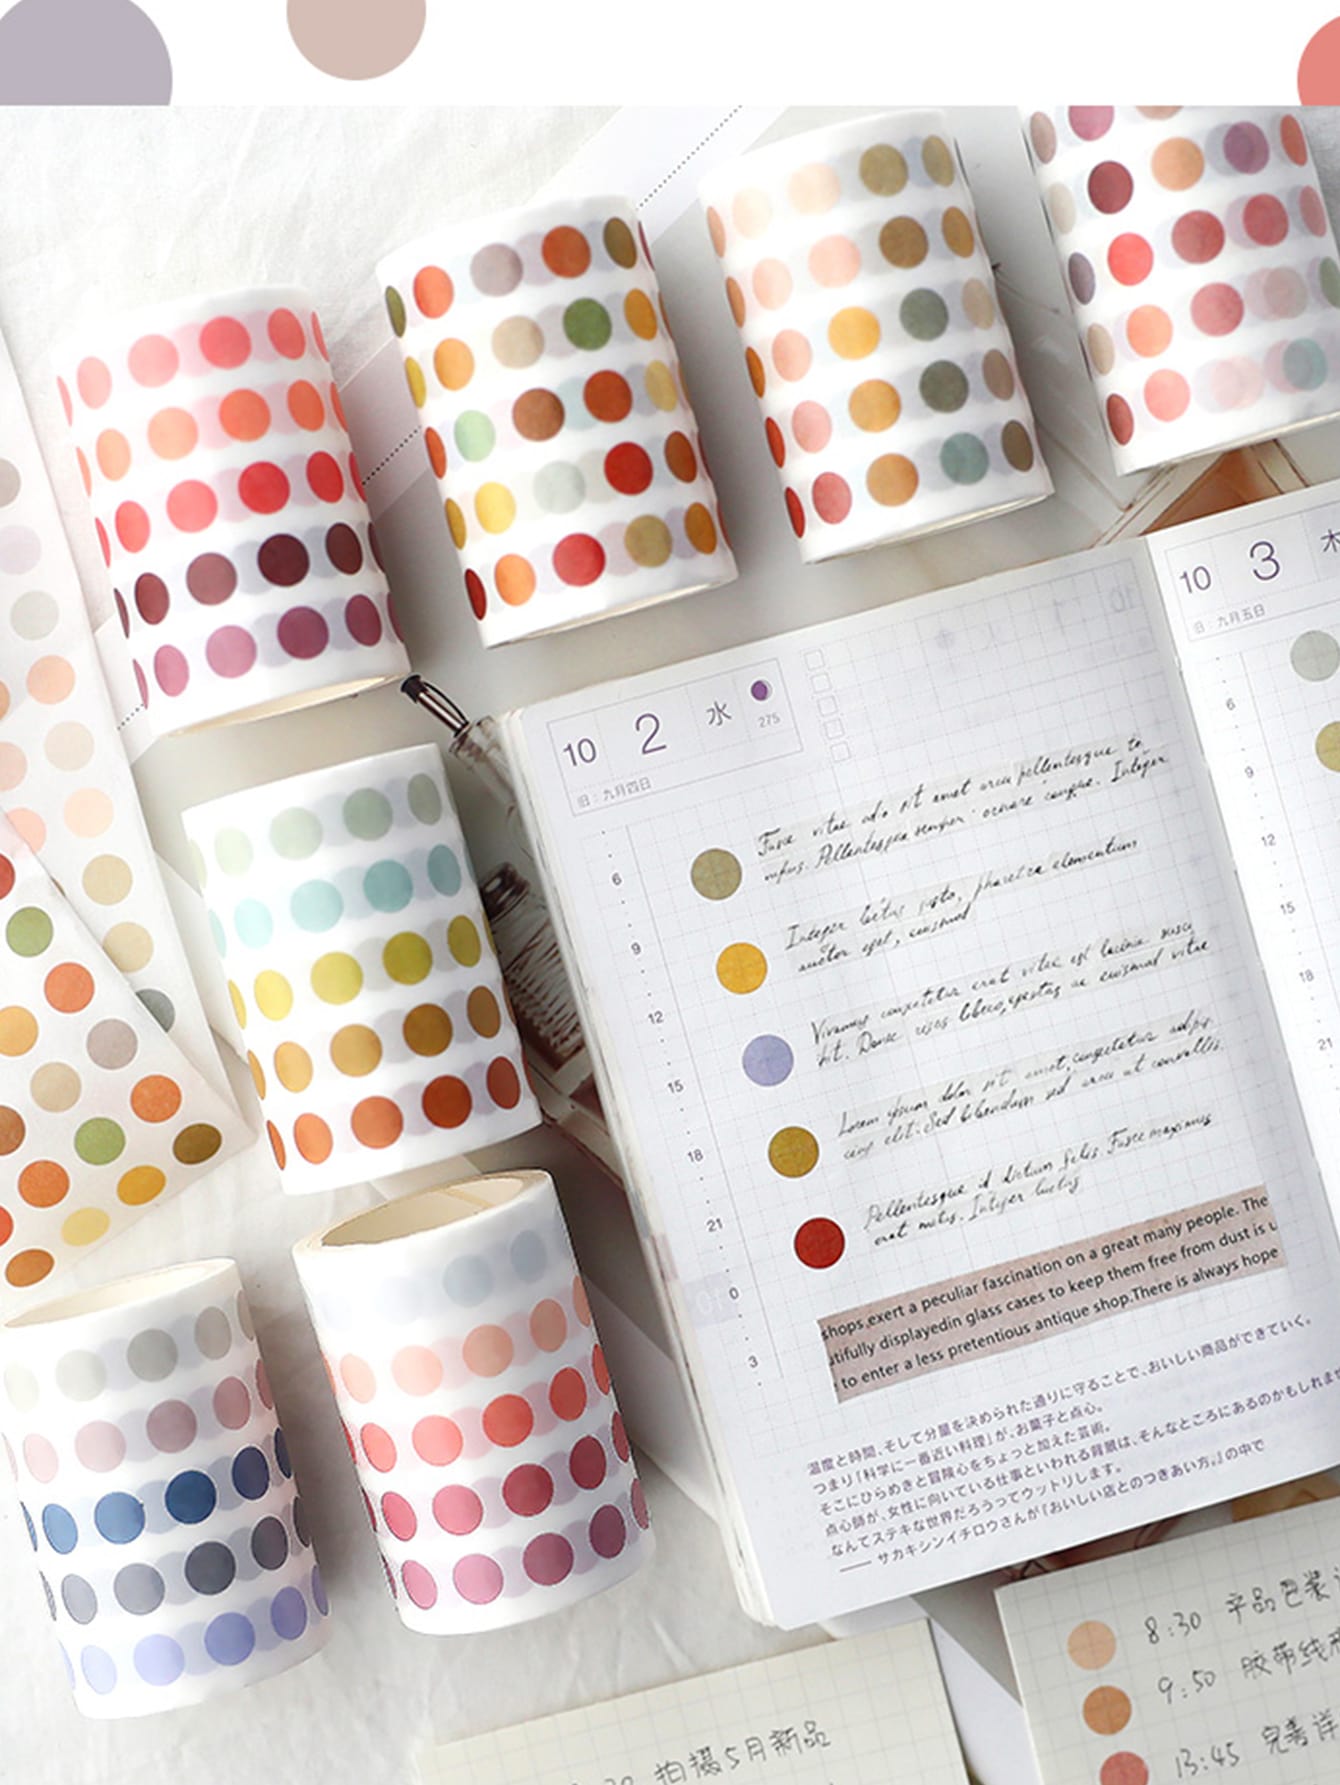 10 2 水
275
旧：九月四日
6
9
12
15
18
21
0
3
Fusce vitae odio sit amet arcu pellentesque to
rufus. Pellentesque semper ornare congue. Integer
Integer luctus justo, pharetra elementum
auctor eget, euismod
Vivamus consectetur erat vitae est lacinia
sit. Donec risus libero, egestas ac euismod vitae
Lorem ipsum dolor sit amet, consectetur adipis-
cing elit. Sed bibendum sed arcu at convallis.
Pellentesque id dictum felis. Fusce maximus
erat metus. Integer luctus
shops,exert a peculiar fascination on a great many people. The
utifully displayedin glass cases to keep them free from dust is u
to enter a less pretentious antique shop.There is always hope
温度と時間、そして分量を決められた通りに守ることで、おいしい商品ができていく。
つまり「科学に一番近い料理」が、お菓子と点心。
そこにひらめきと冒険心をちょっと加えた芸術。
点心師が、女性に向いている仕事といわれる背景は、そんなところにあるのかもしれませ
なんてステキな世界だろうってウットリします。
—— サカキシンイチロウさんが『おいしい店とのつきあい方。』の中で
10 3 木
旧：九月五日
6
9
12
15
18
21
8:30 辛品包装
9:50 胶带线
13:45 完善详
拍摄5月新品